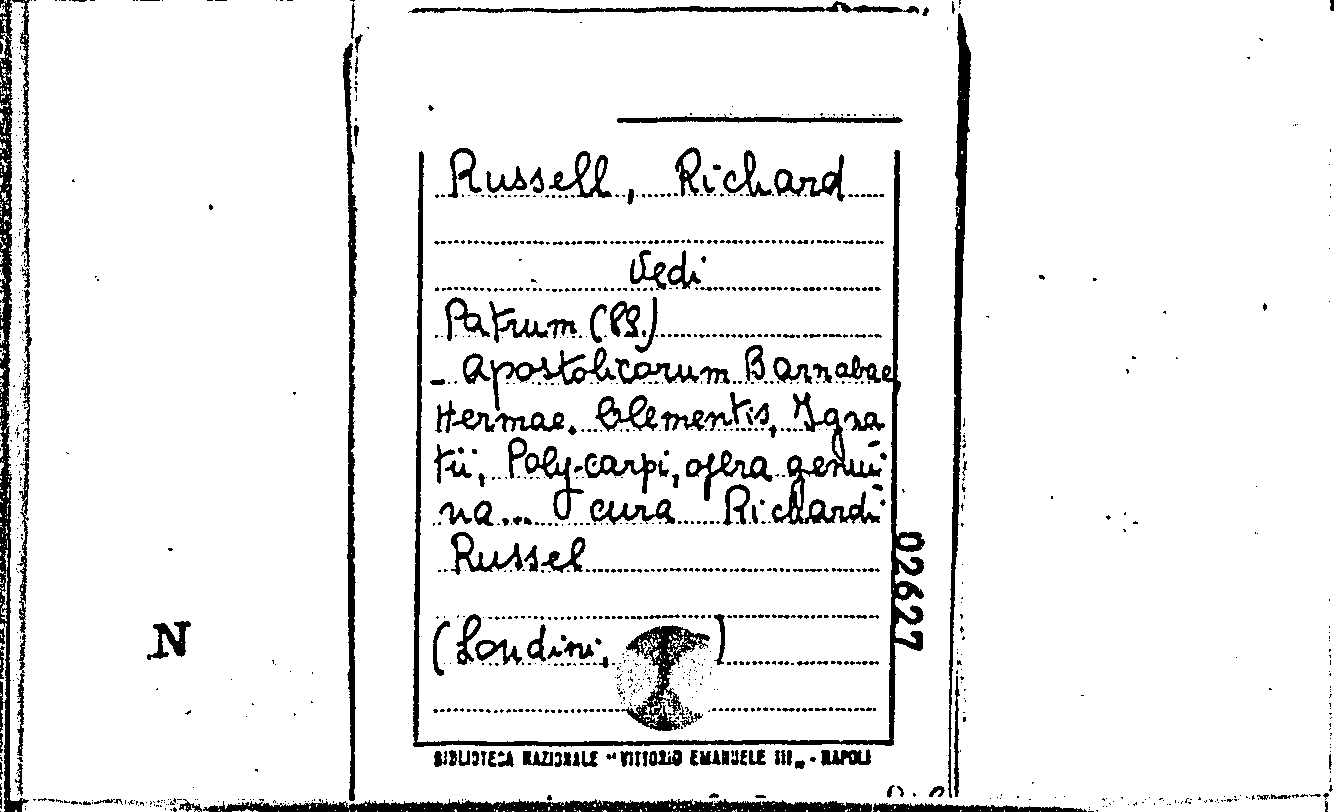 Russell, Richard
Vedi
Patrum (SS.)
- Apostolicorum Barnabae,
Hermae, Clementis, Igna
tii, Poly-carpi, opera genui
na... cura Richardi
Russel
(Londini, )
02627
N
BIBLIOTECA NAZIONALE "VITTORIO EMANUELE III„ - NAPOLI